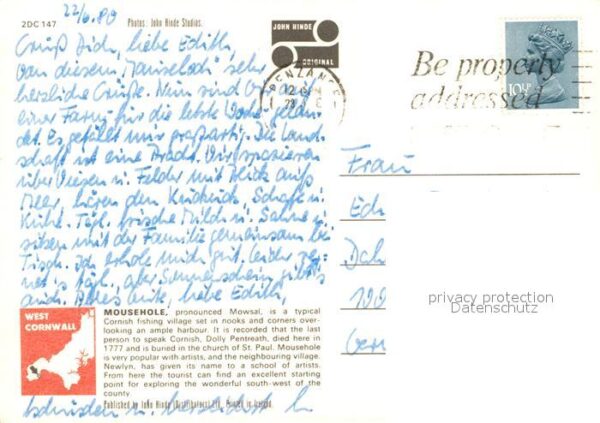 2DC 147
22/6.80
Photos: John Hinde Studios.
JOHN HINDE
ORIGINAL
PENZANCE
Be properly
addressed
10½P
Grüß Dich, liebe Edith,
von diesem "Mauseloch" sehr
herzliche Grüße. Nun sind wir auf
einer Farm für die letzte Woche gelan-
det. Es gefällt mir großartig. Die Land-
schaft ist eine Pracht. Wir spazieren
über Wiesen u. Felder mit Blick aufs
Meer, hören den Kuckuck, Schafe u.
Kühe. Tägl. frische Milch u. Sahne u.
sitzen mit der Familie gemeinsam bei
Tisch. Ich erhole mich gut. Leider reg-
net's tägl., aber Sonnenschein gibt's
auch. Alles Gute, liebe Edith,
Frau
Ed
Dah
100
privacy protection
Datenschutz
WEST
CORNWALL
MOUSEHOLE, pronounced Mowsal, is a typical
Cornish fishing village set in nooks and corners over-
looking an ample harbour. It is recorded that the last
person to speak Cornish, Dolly Pentreath, died here in
1777 and is buried in the church of St. Paul. Mousehole
is very popular with artists, and the neighbouring village.
Newlyn, has given its name to a school of artists.
From here the tourist can find an excellent starting
point for exploring the wonderful south-west of the
county
Published by John Hinde (Distributors) Ltd., Printed in Ireland.